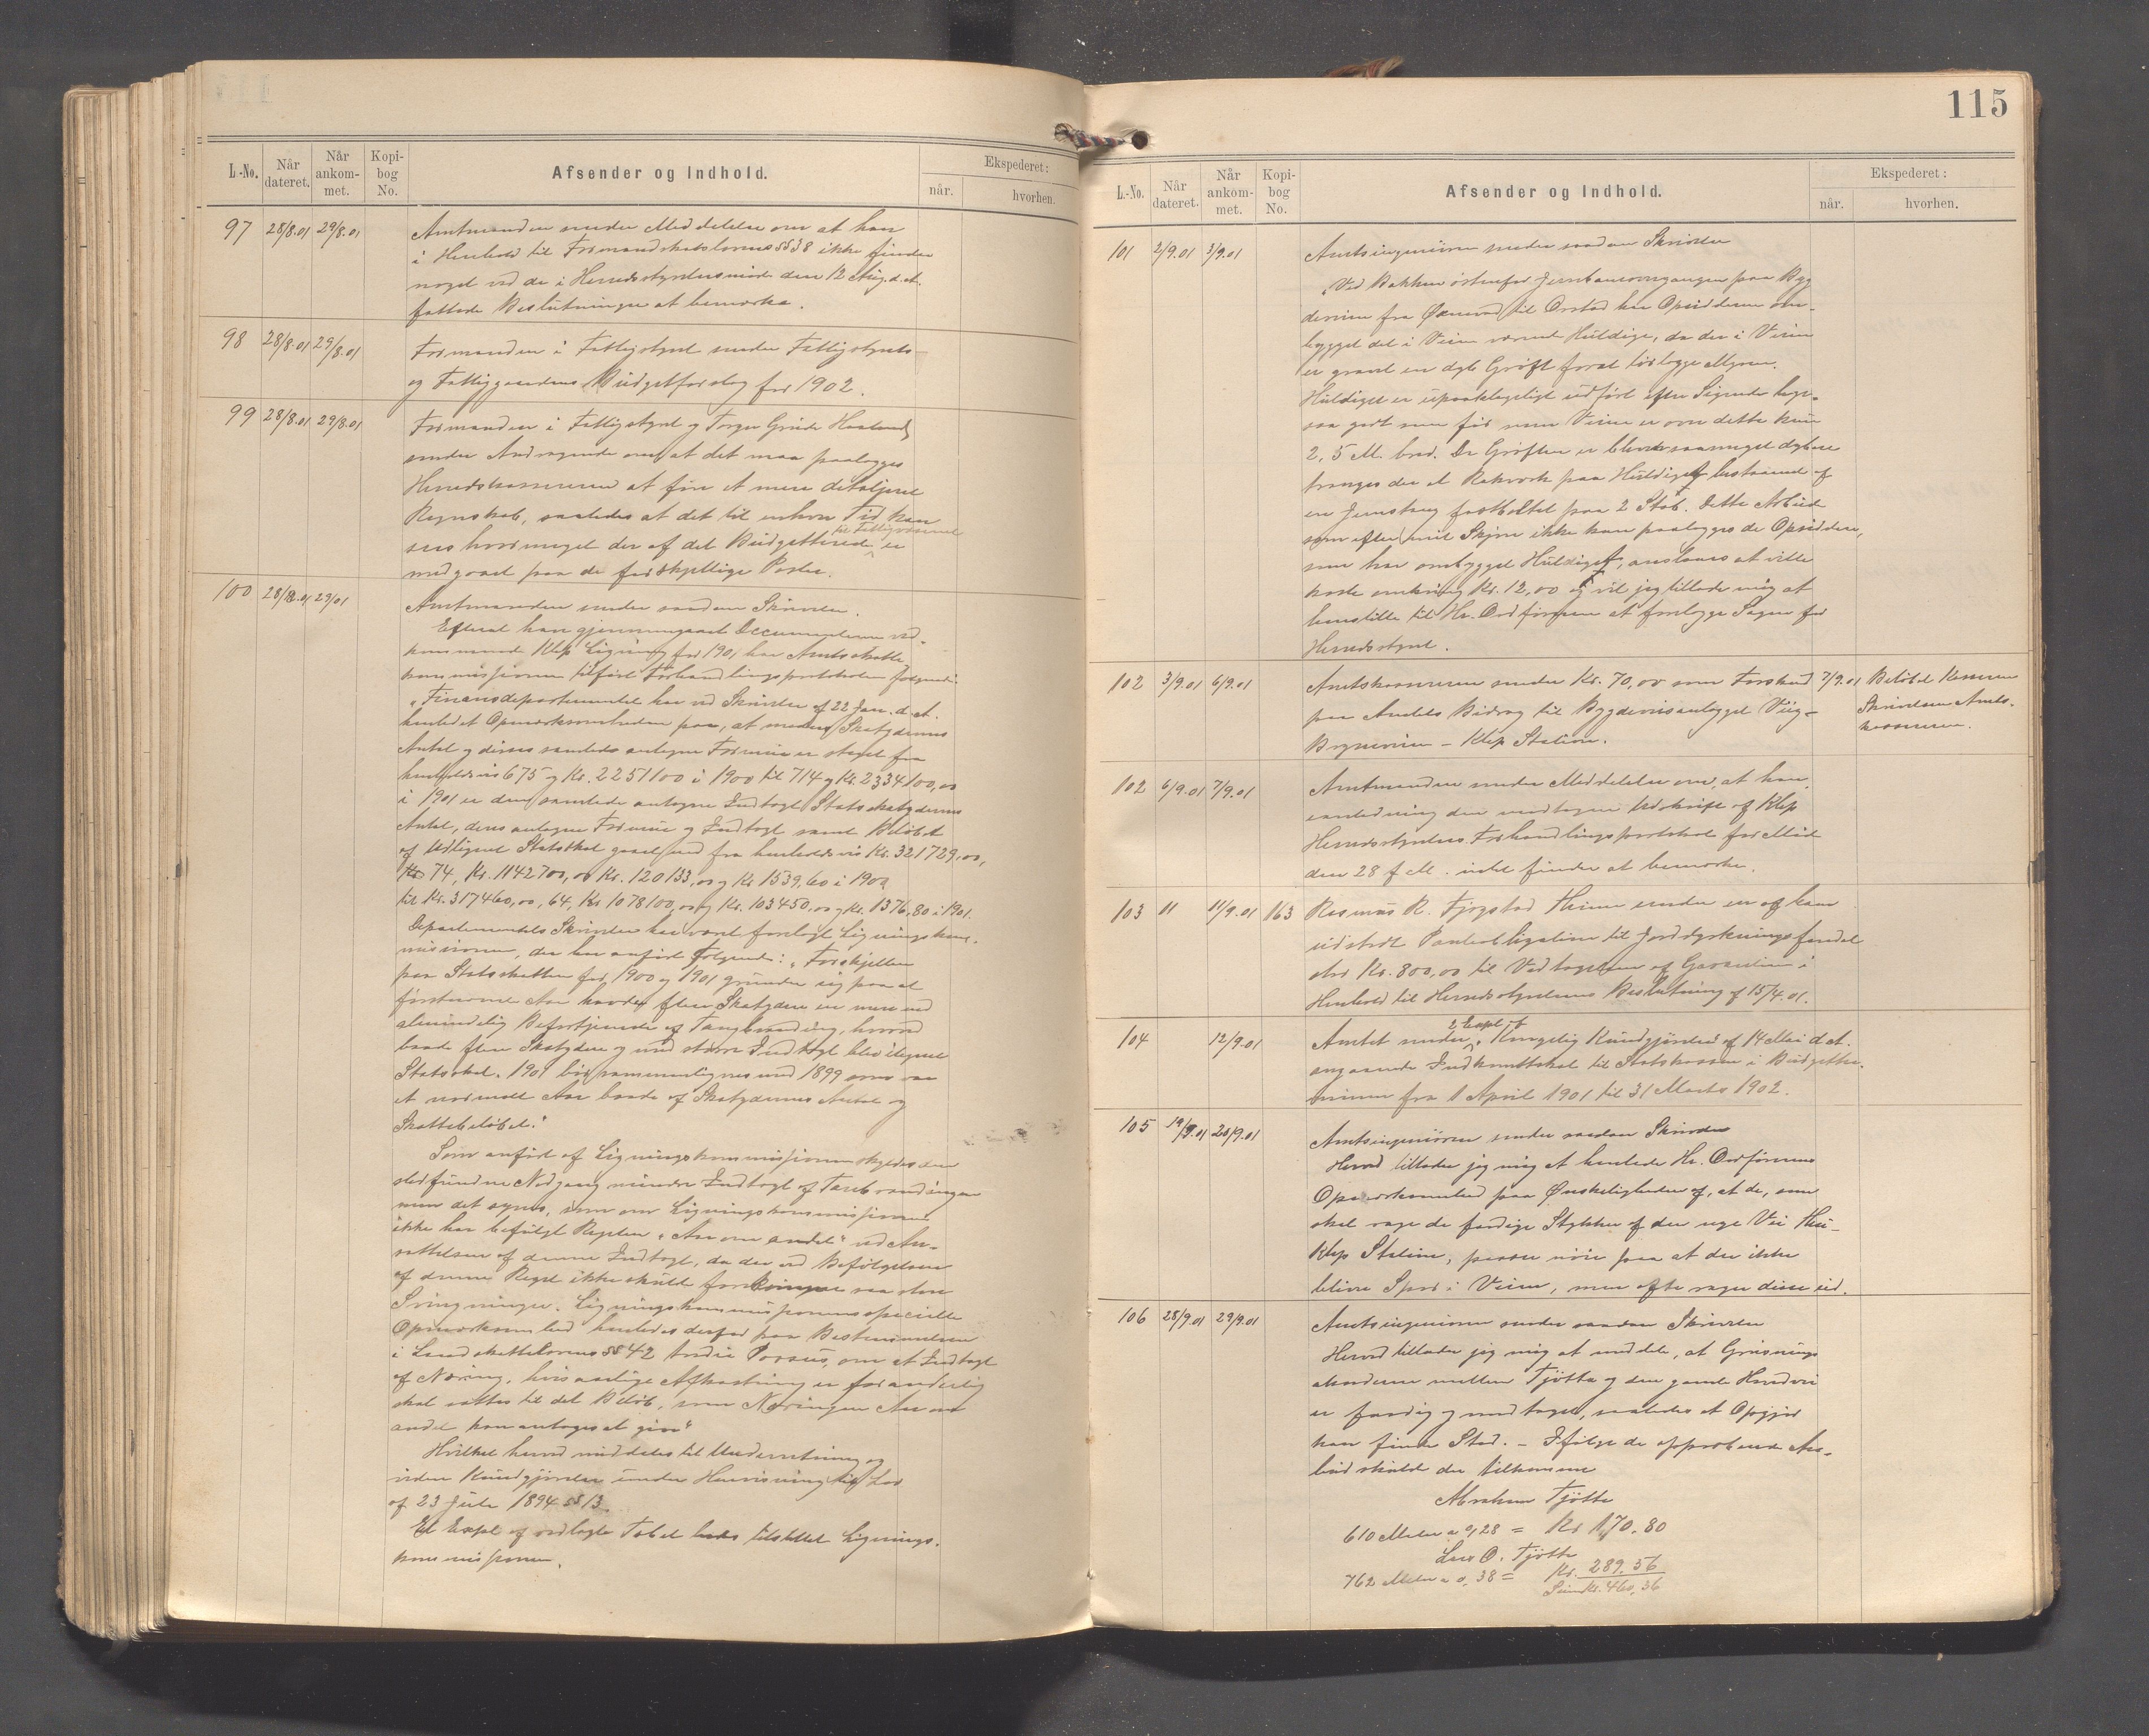 115
L.-No.
Når dateret.
Når ankom-met.
Kopi-bog No.
Afsender og Indhold.
Ekspederet:
når.
hvorhen.
97 28/8.01 29/8.01 Amtmanden sender Meddelelse om at han
i Henhold til Formandskabslovens §§ 38 ikke finder
noget ved de i Herredsstyrelsesmøde den 12 Aug. d. A.
fattede Beslutninger at bemærke.
98 28/8.01 29/8.01 Formanden i Fattigstyret sender Fattigstyrets-
og Fattiggaardens Budgetforslag for 1902.
99 28/8.01 29/8.01 Formanden i Fattigstyret og Torger Grude Haaland
sender Andragende om at det maa paalægges
Herredskassereren at føre et mere detaljeret
Regnskab, saaledes at det til enhver Tid kan
sees hvormeget der af det Budgetterede til Fattigvæsenet er
medgaaet paa de forskjellige Poster.
100 28/8.01 29/01 Amtmanden sender saadan Skrivelse.
Efterat have gjennemgaaet Documenterne ved-
kommende Klep Ligning for 1901 har Amtsskatte
kommissionen tilført Forhandlingsprotokolen følgende:
"Finansdepartementet har ved Skrivelse af 22 Jan. d. A.
henledet Opmærksomheden paa, at medens Skatydernes
Antal og disses samlede antagne Formue er steget fra
henholdsvis 675 og Kr. 2251100 i 1900 til 714 og Kr. 2334100,00
i 1901 er den samlede antagne Indtægt Statsskatydernes
Antal, deres antagne Formue og Indtægt samt Beløbet
af Udlignet Statsskat gaaet ned fra henholdsvis Kr. 321729.00,
74, Kr. 1142700,00 Kr. 120133,00 og Kr 1539,60 i 1900
til Kr. 317460,00, 64, Kr 1078100,00 og Kr. 103450,00 og Kr. 1376,80 i 1901.
Departementets Skrivelse har været forelagt Ligningskom-
missionen, der har anført Følgende: "Forskjellen
paa Statsskatten for 1900 og 1901 grunder sig paa at
førstnævnte Aar havde flere Skatydere en mere end
almindelig Befortjeneste af Tangbrænding, hvorved
baade flere Skatydere og med større Indtægt blev ilignet
Statsskat. 1901 bør sammenlignes med 1899 som var
et normalt Aar baade af Skatydernes Antal og
Skattebeløbet."
Som anført af Ligningskommissionen skyldes den
stedfundne Nedgang mindre Indtægt af Tarebrændingen
men det synes, som om Ligningskommissionen
ikke har befulgt Regelen "Aar om andet" ved An-
sættelsen af denne Indtægt, da der ved Befølgelsen
af denne Regel ikke skulde forekomme saa store
Svingninger. Ligningskommissionens specielle
Opmærksomhed henledes derfor paa Bestemmelsen
i Landskattelovens §§ 42 tredie Passus, om at Indtægt
af Næring, hvis aarlige Afkastning er foranderlig
skal sættes til det Beløb, som Næringen Aar om
andet kan antages at give"
Hvilket herved meddeles til Underretning og
videre Kundgjørelse under Henvisning til Lov
af 23 Juli 1894 §§ 13.
Et Expl af vedlagte Tabel bedes tilstillet Lignings-
kommissionen.
L.-No.
Når dateret.
Når ankom-met.
Kopi-bog No.
Afsender og Indhold.
Ekspederet:
når.
hvorhen.
101 2/9.01 3/9.01 Amtsingeniøren sender saadan Skrivelse
"Ved Bakken østenfor Jernbaneovergangen paa Byg
deveien fra Øxnevad til Orstad har Opsidderne om-
bygget det i Veien værende Huldige, da der i Veien
er gravet en dyb Grøft forat tørlægge Myren.
Huldiget er upaaklageligt udført efter Sigende lige-
saa godt som før men Veien er over dette kun
2,5 M. bred. Da Grøften er bleven saameget dybere
trænges der et Rækverk paa Huldiget bestaaende af
en Jernstang fastboltet paa 2 Støb. Dette Arbeide
som efter mit Skjøn ikke kan paalægges de Opsiddere,
som har ombygget Huldiget, ansees at ville
koste omkring Kr. 12,00 og vil jeg tillade mig at
henstille til Hr. Ordføreren at forelægge Sagen for
Herredsstyret.
102 3/9.01 6/9.01 Amtskassereren sender Kr. 70,00 som Forskud 7/9.01 Beløbet Kasseren
paa Amtets Bidrag til Bygdeveisanlægget Viig- Skrivelsen Amts-
Bryneveien - Klep Station. kassereren.
102 6/9.01 7/9.01 Amtmanden sender Meddelelse om, at han,
i anledning den modtagne Udskrift af Klep
Herredsstyrelses Forhandlingsprotokol for Møde
den 28 f. M. intet finder at bemærke.
103 11 11/9.01 163 Rasmus R. Tjøgstad Heime sender en af ham
udstedt Pantobligation til Jorddyrkningsfondet
stor Kr. 800,00 til Vedtagelsen af Garantien i
Henhold til Herredsstyrelsens Beslutning af 15/4.01.
104 12/9.01 Amtet sender 2 Expl. af Kongelig Kundgjørelse af 14 Mai d. A.
angaaende Indkomstskat til Statskassen i Budgetter-
minen fra 1 April 1901 til 31 Marts 1902.
105 19/9.01 20/9.01 Amtsingeniøren sender saadan Skrivelse
Herved tillader jeg mig at henlede Hr. Ordførerens
Opmærksomhed paa Ønskeligheden af, at de, som
skal rage de færdige Stykker af den nye Vei
Klep Station, passer nøie paa at der ikke
bliver Spor i Veien, men ofte rager disse ud.
106 28/9.01 29/9.01 Amtsingeniøren sender saadan Skrivelse
Herved tillader jeg mig at meddele, at Grusnings
akorderne mellem Tjøtta og den gamle Hovedvei
er færdig og modtaget, saaledes at Opgjør
kan finde Sted. - Ifølge de approberede An-
bud skulde der tilkomme
Abraham Tjøtta
610 Meter a 0,28 = Kr 170.80
Lars O. Tjøtta
762 Meter a 0,38 = Kr. 289,56
Sum Kr. 460,36